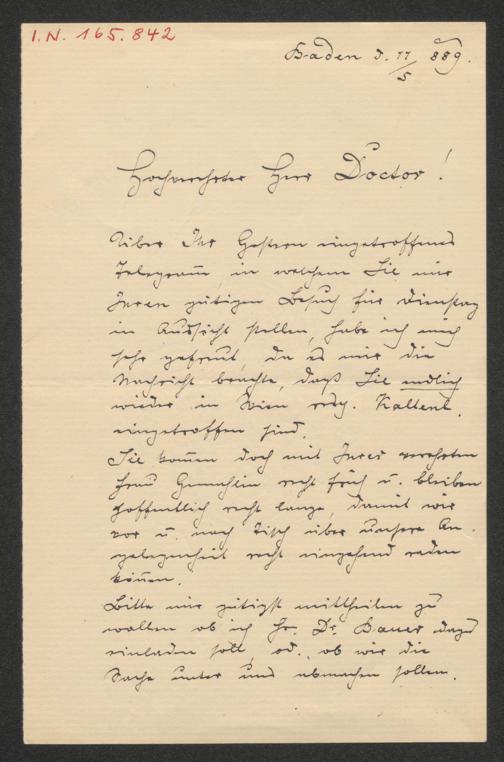 I.N. 165.842
Baden d. 11/5 889.
Hochverehrter Herr Doctor!
Über Ihr Gestern eingetroffenes
Telegram̅, in welchem Sie mir
Ihren gütigen Besuch für Dienstag
in Aussicht stellen, habe ich mich
sehr gefreut, da es mir die
Nachricht brachte, daß Sie endlich
wieder in Wien resp. Kaltenl.
eingetroffen sind.
Sie kom̅en doch mit Ihrer verehrten
Frau Gemahlin recht früh u. bleiben
hoffentlich recht lange, damit wir
vor u. nach Tisch über unsere An-
gelegenheit recht eingehend reden
kön̅en.
Bitte mir gütigst mittheilen zu
wollen ob ich Hr. Dr. Bauer dazu
einladen soll, od. ob wir die
Sache unter uns abmachen sollen.